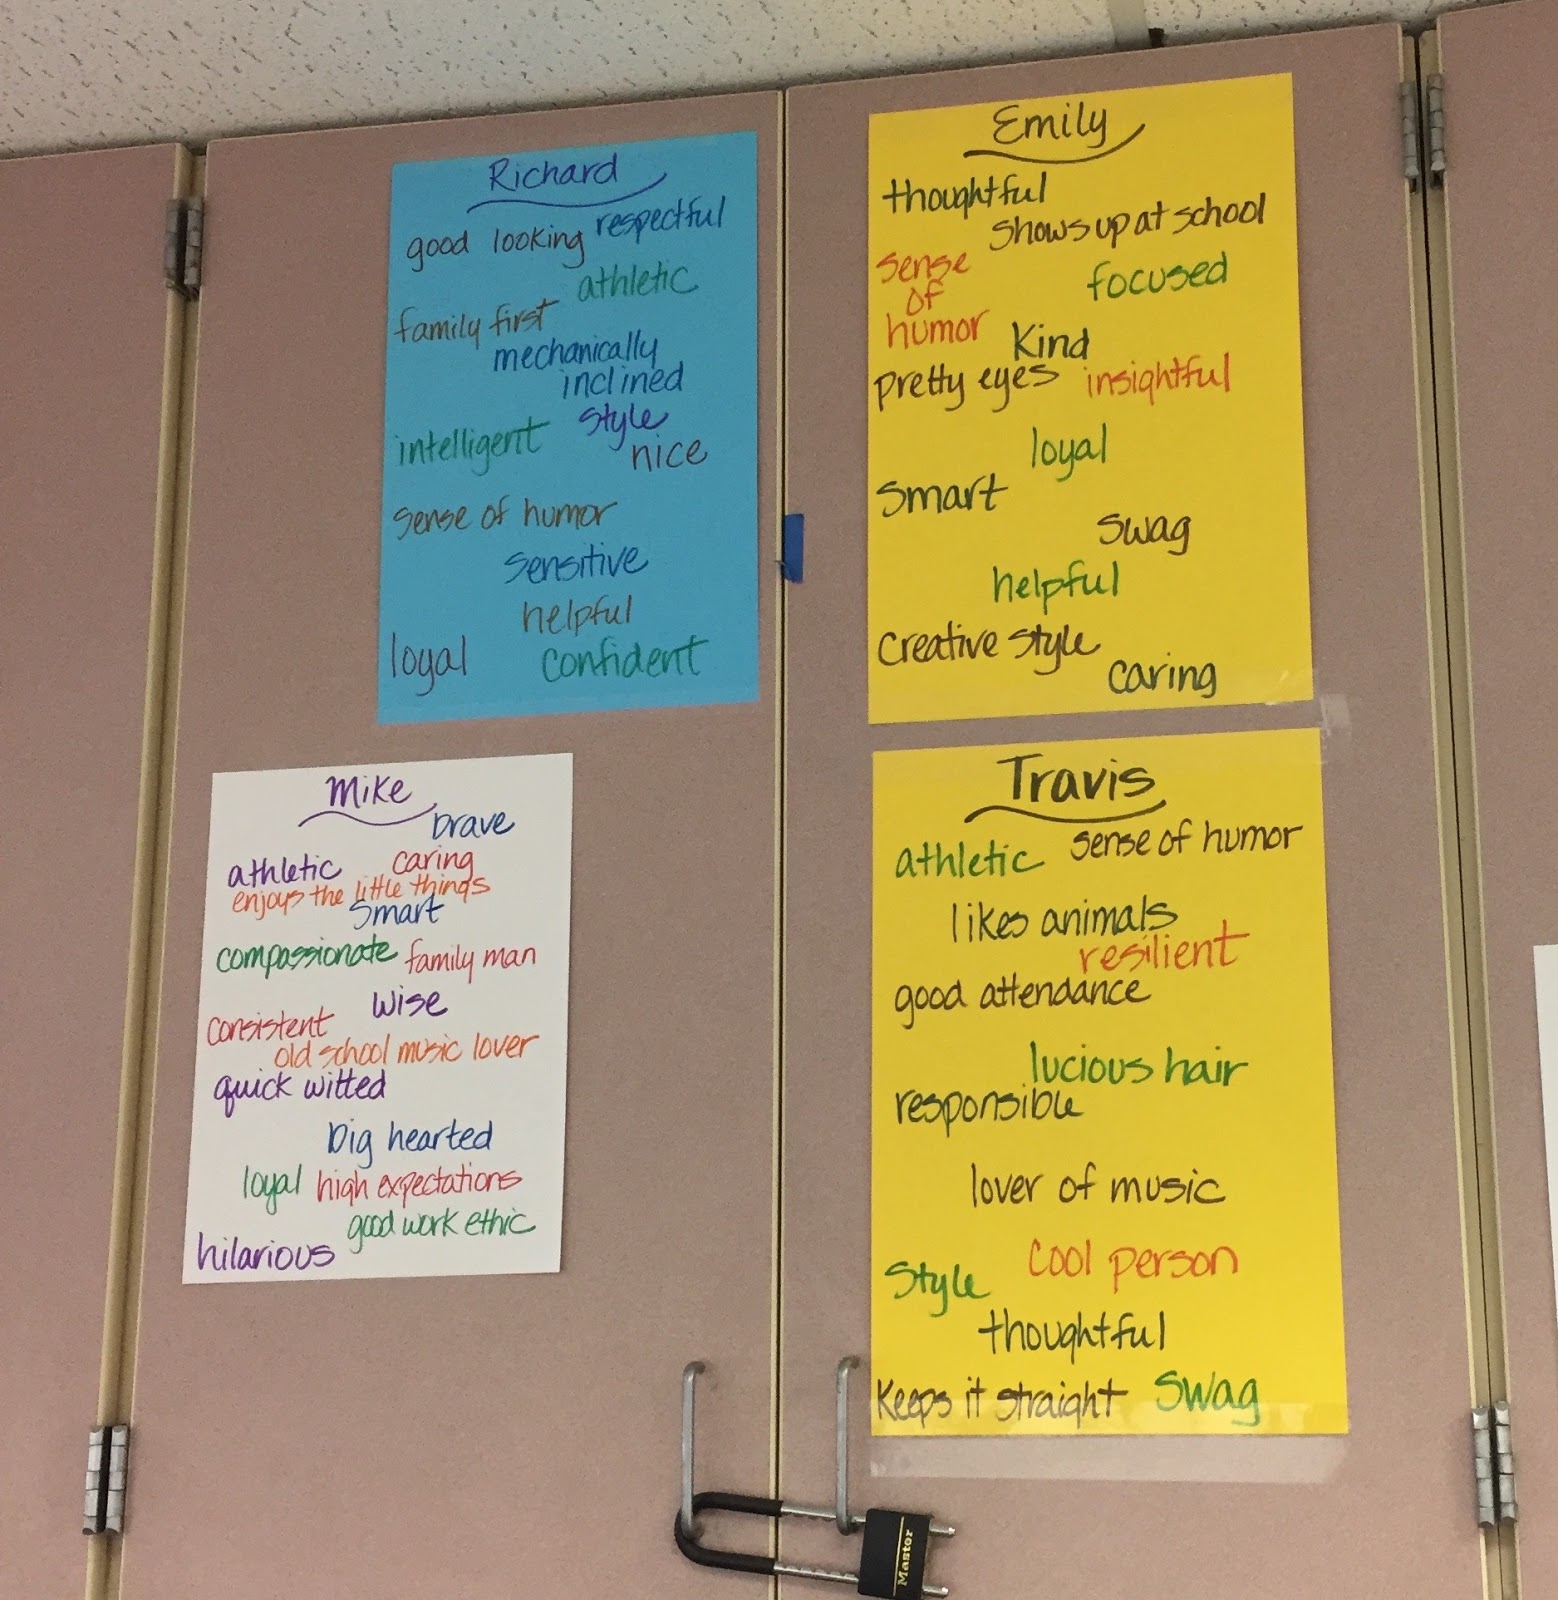 Richard
good looking respectful
athletic
family first
mechanically
inclined
style
intelligent
nice
sense of humor
sensitive
helpful
loyal confident
Emily
thoughtful
shows up at school
sense
of
humor
focused
Kind
pretty eyes insightful
loyal
smart
swag
helpful
creative style
caring
Mike
brave
athletic caring
enjoys the little things
smart
compassionate family man
wise
consistent
old school music lover
quick witted
big hearted
loyal high expectations
good work ethic
hilarious
Travis
athletic sense of humor
likes animals
resilient
good attendance
lucious hair
responsible
lover of music
cool person
style
thoughtful
Keeps it straight swag
Master